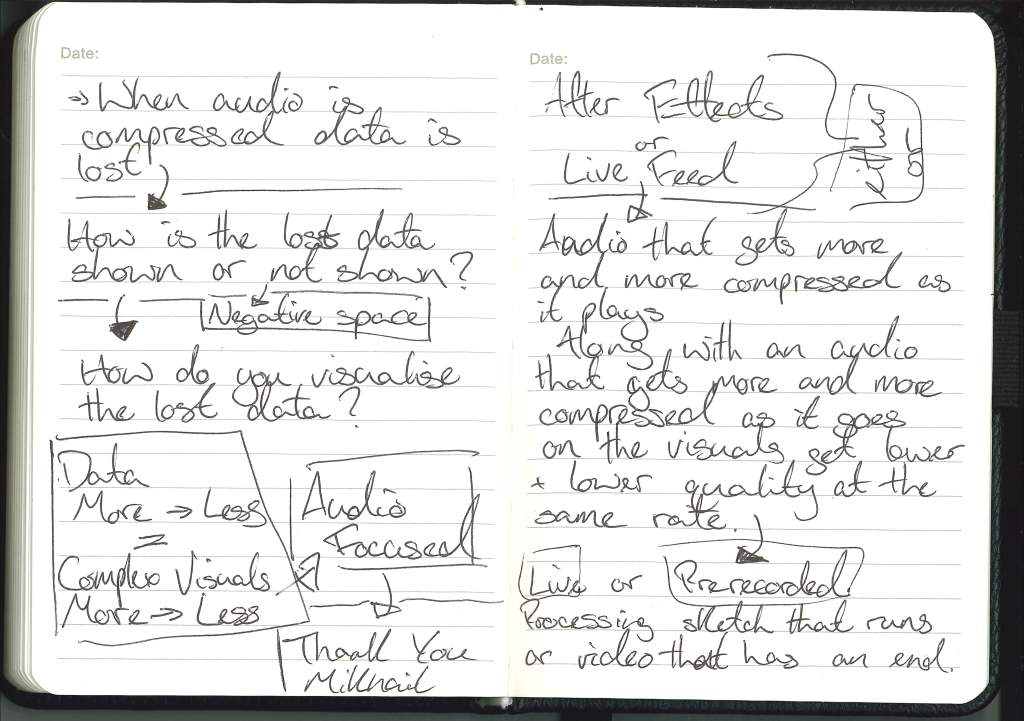 Date:
→ When audio is
compressed data is
lost
How is the lost data
shown or not shown?
Negative space
How do you visualise
the lost data?
Data
More → Less
=
Complex Visuals
More → Less
Audio
Focused
Thank You
Mikhail
Date:
After Effects
or
Live Feed
either
or
Audio that gets more
and more compressed as
it plays
Along with an audio
that gets more and more
compressed as it goes
on the visuals get lower
+ lower quality at the
same rate.
Live or Prerecorded.
Processing sketch that runs
or video that has an end.